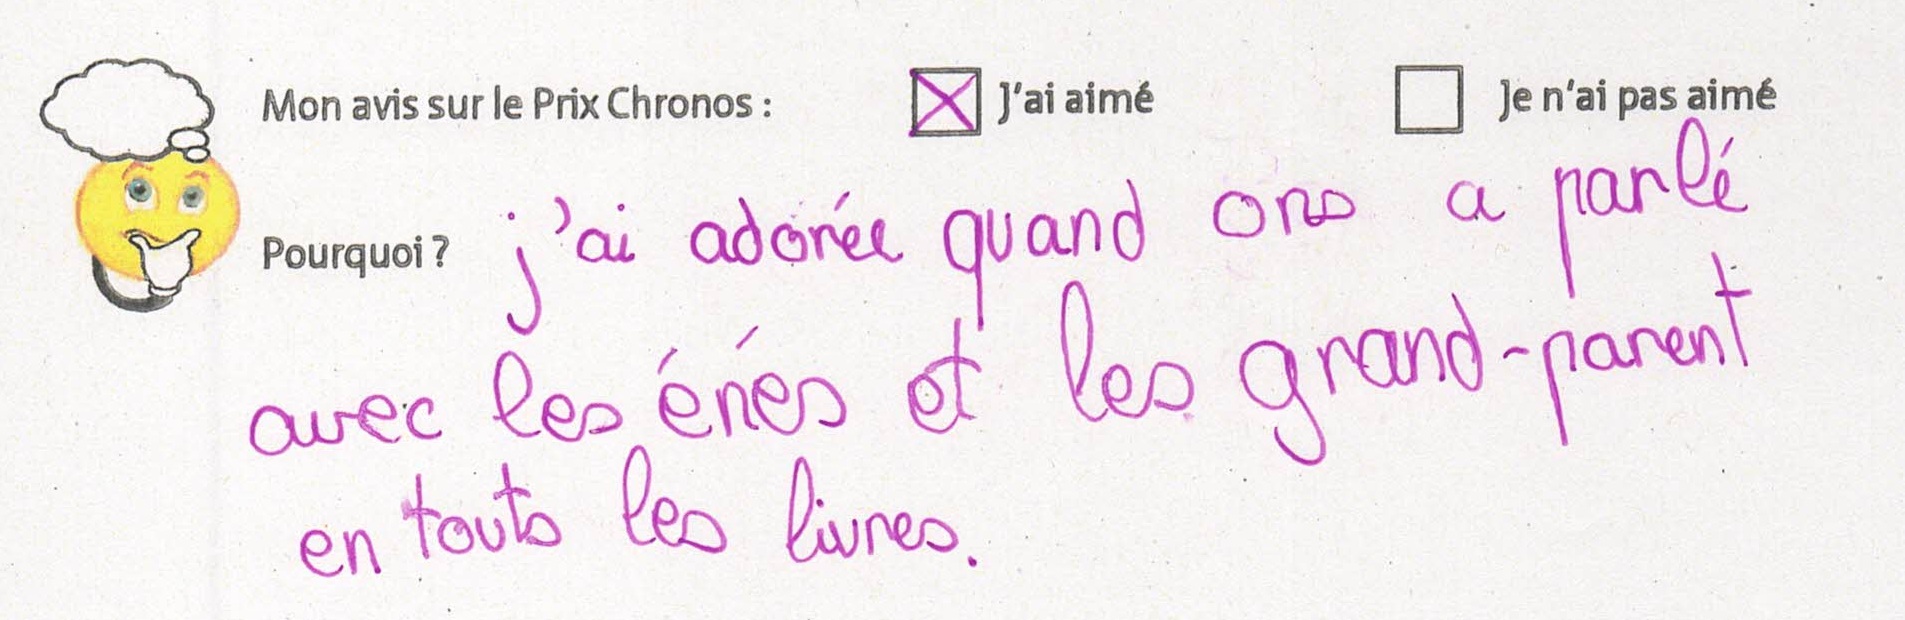 Mon avis sur le Prix Chronos : J'ai aimé Je n'ai pas aimé
Pourquoi ? j'ai adorée quand ons a parlé
avec les énés et les grand-parent
en touts les livres.